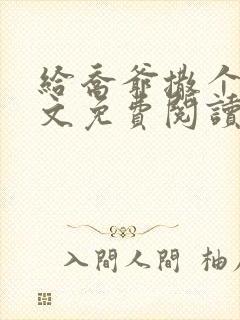 給喬爺撒个
文免費閱讀
入間人間 柚